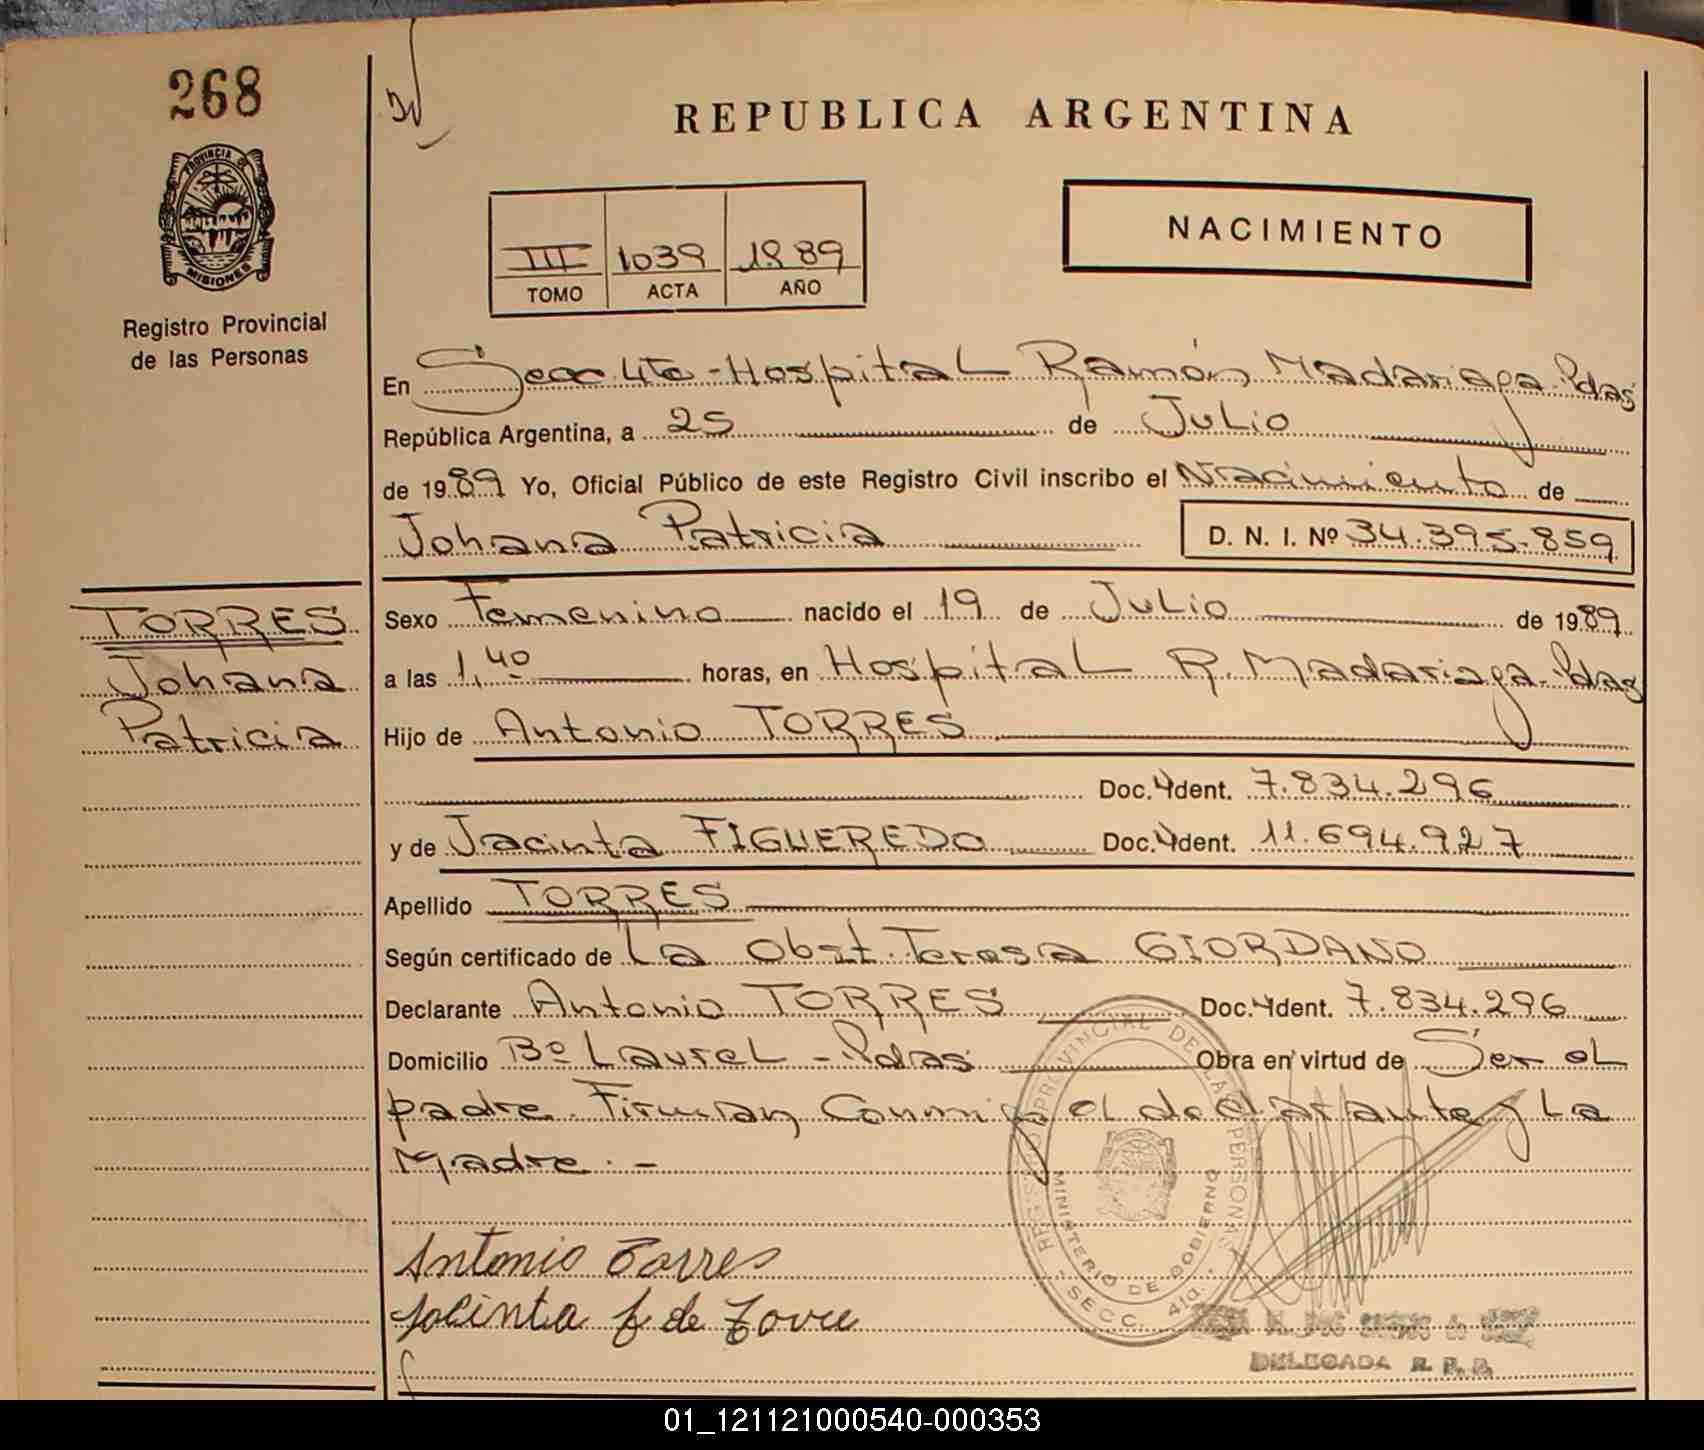 268
REPUBLICA ARGENTINA
PROVINCIA DE
MISIONES
Registro Provincial
de las Personas
III 1039 1989
TOMO ACTA AÑO
NACIMIENTO
En Secc 4ta - Hospital Ramón Madariaga - Pdas
República Argentina, a 25 de Julio
de 1989 Yo, Oficial Público de este Registro Civil inscribo el Nacimiento de
Johana Patricia D. N. I. Nº 34.395.859
TORRES
Johana
Patricia
Sexo Femenino nacido el 19 de Julio de 1989
a las 1,40 horas, en Hospital R. Madariaga - Pdas
Hijo de Antonio TORRES
Doc. Ydent. 7.834.296
y de Jacinta FIGUEREDO Doc. Ydent. 11.694.927
Apellido TORRES
Según certificado de La Obst. Teresa GIORDANO
Declarante Antonio TORRES Doc. Ydent. 7.834.296
Domicilio Bº Laurel - Pdas Obra en virtud de Ser el
padre. Firman Conmigo el declarante y La
Madre. -
REGISTRO PROVINCIAL DE LAS PERSONAS
MINISTERIO DE GOBIERNO
- SECC. 4ta. -
Antonio Torres
Jacinta F de Torre
DELEGADA R. P. P.
01_121121000540-000353